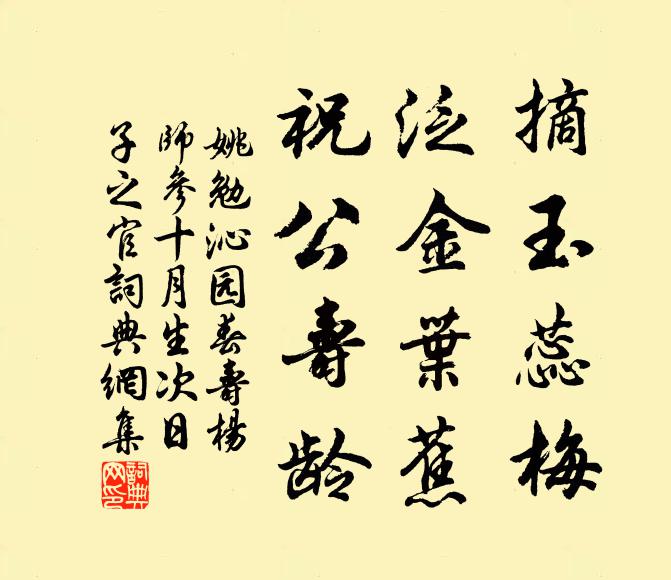 摘玉蕊梅
泛金葉蕉
祝公壽龄
姚勉沁园春壽楊
師參十月生次日
子之官詞典網集
詞典网印